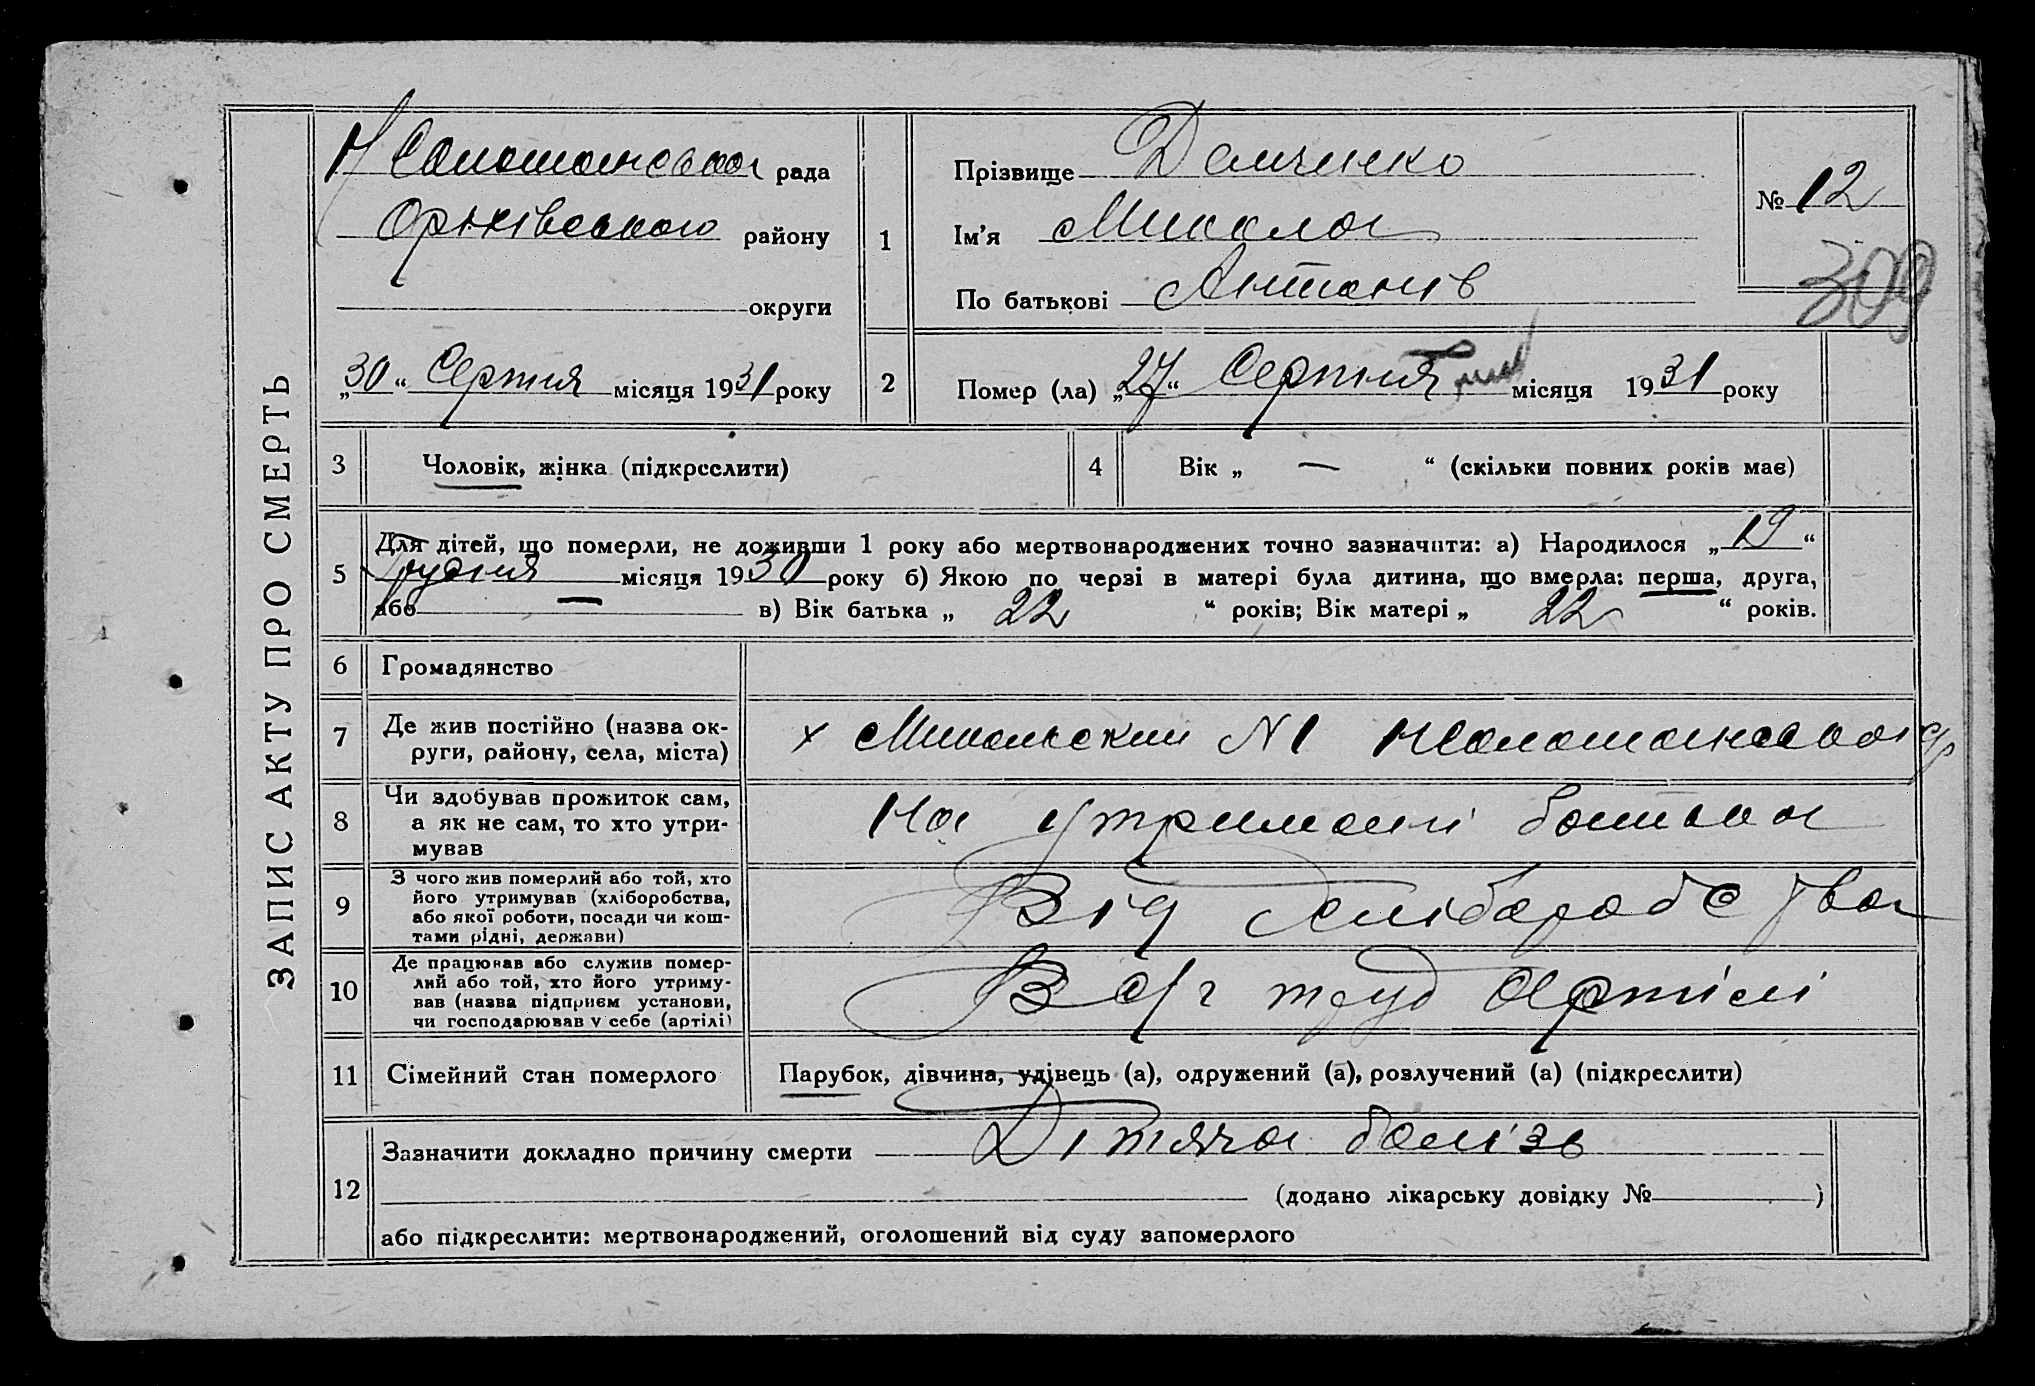 ЗАПИС АКТУ ПРО СМЕРТЬ
рада
Оріхівського району
округи
„30“ Серпня місяця 1931 року
1
Прізвище Демченко
Ім'я Микола
По батькові Антонів
№ 12
309
2
Помер (ла) „27“ Серпня місяця 1931 року
3 Чоловік, жінка (підкреслити)
4 Вік „ — “ (скільки повних років має)
5 Для дітей, що померли, не доживши 1 року або мертвонароджених точно зазначити: а) Народилося „19“
Грудня місяця 1930 року б) Якою по черзі в матері була дитина, що вмерла: перша, друга,
або — в) Вік батька „ 22 “ років; Вік матері „ 22 “ років.
6 Громадянство
7 Де жив постійно (назва ок-
руги, району, села, міста)
х N1
8 Чи здобував прожиток сам,
а як не сам, то хто утри-
мував
На утримані батька
9 З чого жив померлий або той, хто
його утримував (хліборобства,
або якої роботи, посади чи кош-
тами рідні, держави)
Від Хліборобства
10 Де працював або служив помер-
лий або той, хто його утриму-
вав (назва підприєм установи,
чи господарював у себе (артілі)
В с/г труд Артілі
11 Сімейний стан померлого
Парубок, дівчина, удівець (а), одружений (а), розлучений (а) (підкреслити)
12
Зазначити докладно причину смерти Дітяча болізь
(додано лікарську довідку № )
або підкреслити: мертвонароджений, оголошений від суду запомерлого